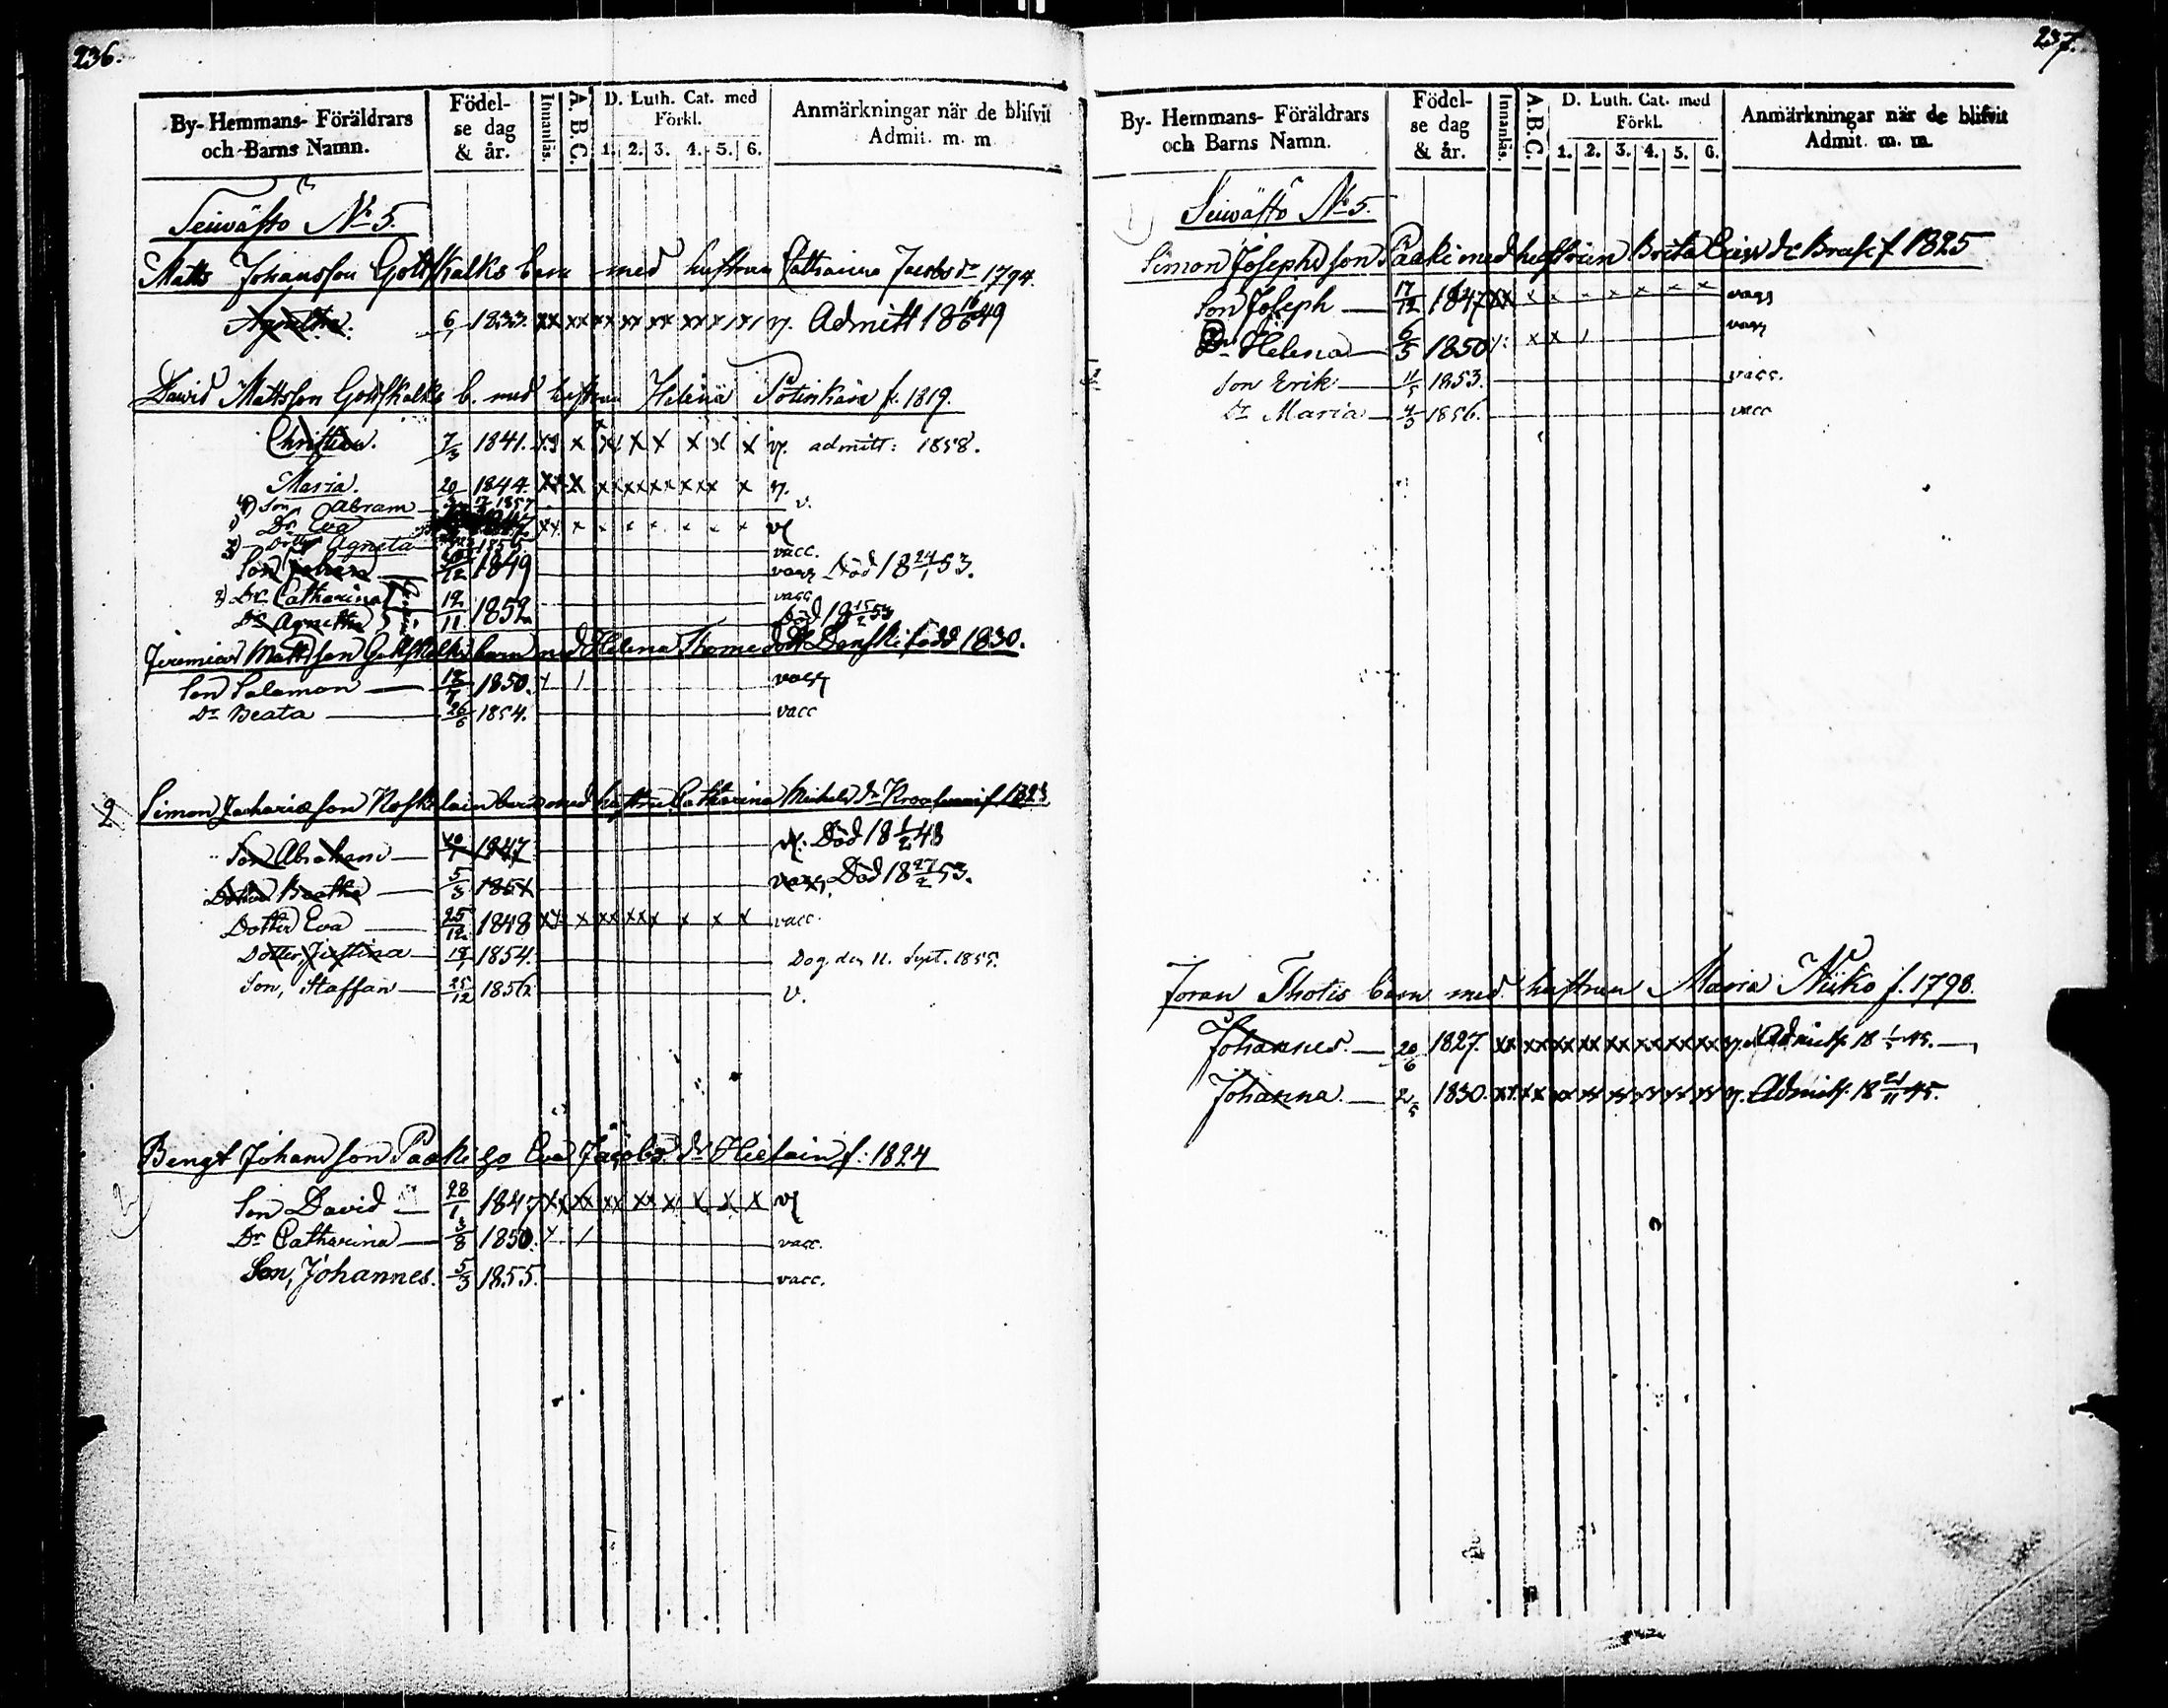 236.
By- Hemmans- Föräldrars och Barns Namn.
Födel-se dag & år.
Innanläs.
A. B. C.
D. Luth. Cat. med Förkl.
1. 2. 3. 4. 5. 6.
Anmärkningar när de blifvit Admit. m. m
Seivästo No 5.
Matts Johansson Gottskalks barn med hustrun Catharina Jacobs dr 1794.
Agnetha. 6/1 1833. xx xx xx xx xx xx x x v. Admitt 18 16/6 49
David Mattsson Gottskalks b. med hustrun Helena Potinkain f. 1819.
Christian. 7/3 1841. x x x x x x x x v. admitt: 1858.
Maria. 20 1844. xx x xx xx xx xx x v.
4) Son Abram 1857 v.
1) Dr Eva 1847 xx x v
3) Dotter Agneta 1856 vacc.
Son Johan 12 1849 vacc Död 18 24/1 53.
2) Dr Catharina 12/11 1852 vacc
Dr Agnetha död 18 15/2 53
Jeremias Mattsson Gottskalks barn med Helena Thome dotter Danski född 1830.
Son Salomon 12/7 1850. x / vacc
Dr Beata 26/6 1854. vacc
2 Simon Zachariæson barn med hustrun Catharina Michels dr f 1823
Son Abraham 1847 v. Död 18 1/2 48
Dotter Beatha 5/3 1851 vacc, Död 18 27/2 53.
Dotter Eva 25/12 1848 xx x xx xxx x x x vacc.
Dotter, Justina 18/1 1854. Dog den 11. Sept. 1855.
Son, Staffan 25/12 1856 v.
Bengt Johansson Paaki Eva Jacobs dr Hietain f: 1824
Son David 28/1 1847 xx xx xx xx x x x x v
Dr Catharina 3/8 1850. x / vacc.
Son, Johannes. 5/3 1855. vacc.
237.
By- Hemmans- Föräldrars och Barns Namn.
Födel-se dag & år.
Innanläs.
A. B. C.
D. Luth. Cat. med Förkl.
1. 2. 3. 4. 5. 6.
Anmärkningar när de blifvit Admit. m. m.
Seivästo No 5.
Simon Josephsson Paaki med hustrun Brita Erics dr Brasi f 1825
Son Joseph 17/12 1847 xx x x x x x x x vacc
Dr Helena 6/5 1850 x x / vacc
Son Erik 11/5 1853. vacc.
Dr Maria 4/3 1856. vacc
Joran Thotis barn med hustrun Maria Niiko f. 1798.
Johannes. 20/6 1827. xx xx xx xx xx xx xx xx v. Admitt. 18 45.
Johanna. 2/5 1830. xx xx xx xx xx xx xx xx v. Admitt. 18 21/11 45.